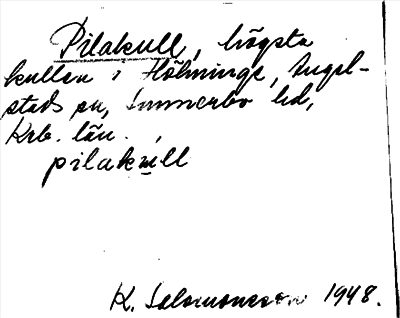 Pilakull, högsta
kullen i Höhninge, Angel-
stads sn, Sunnerbo hd,
Krb. län.
pilakull
K. Salomonsson 1948.